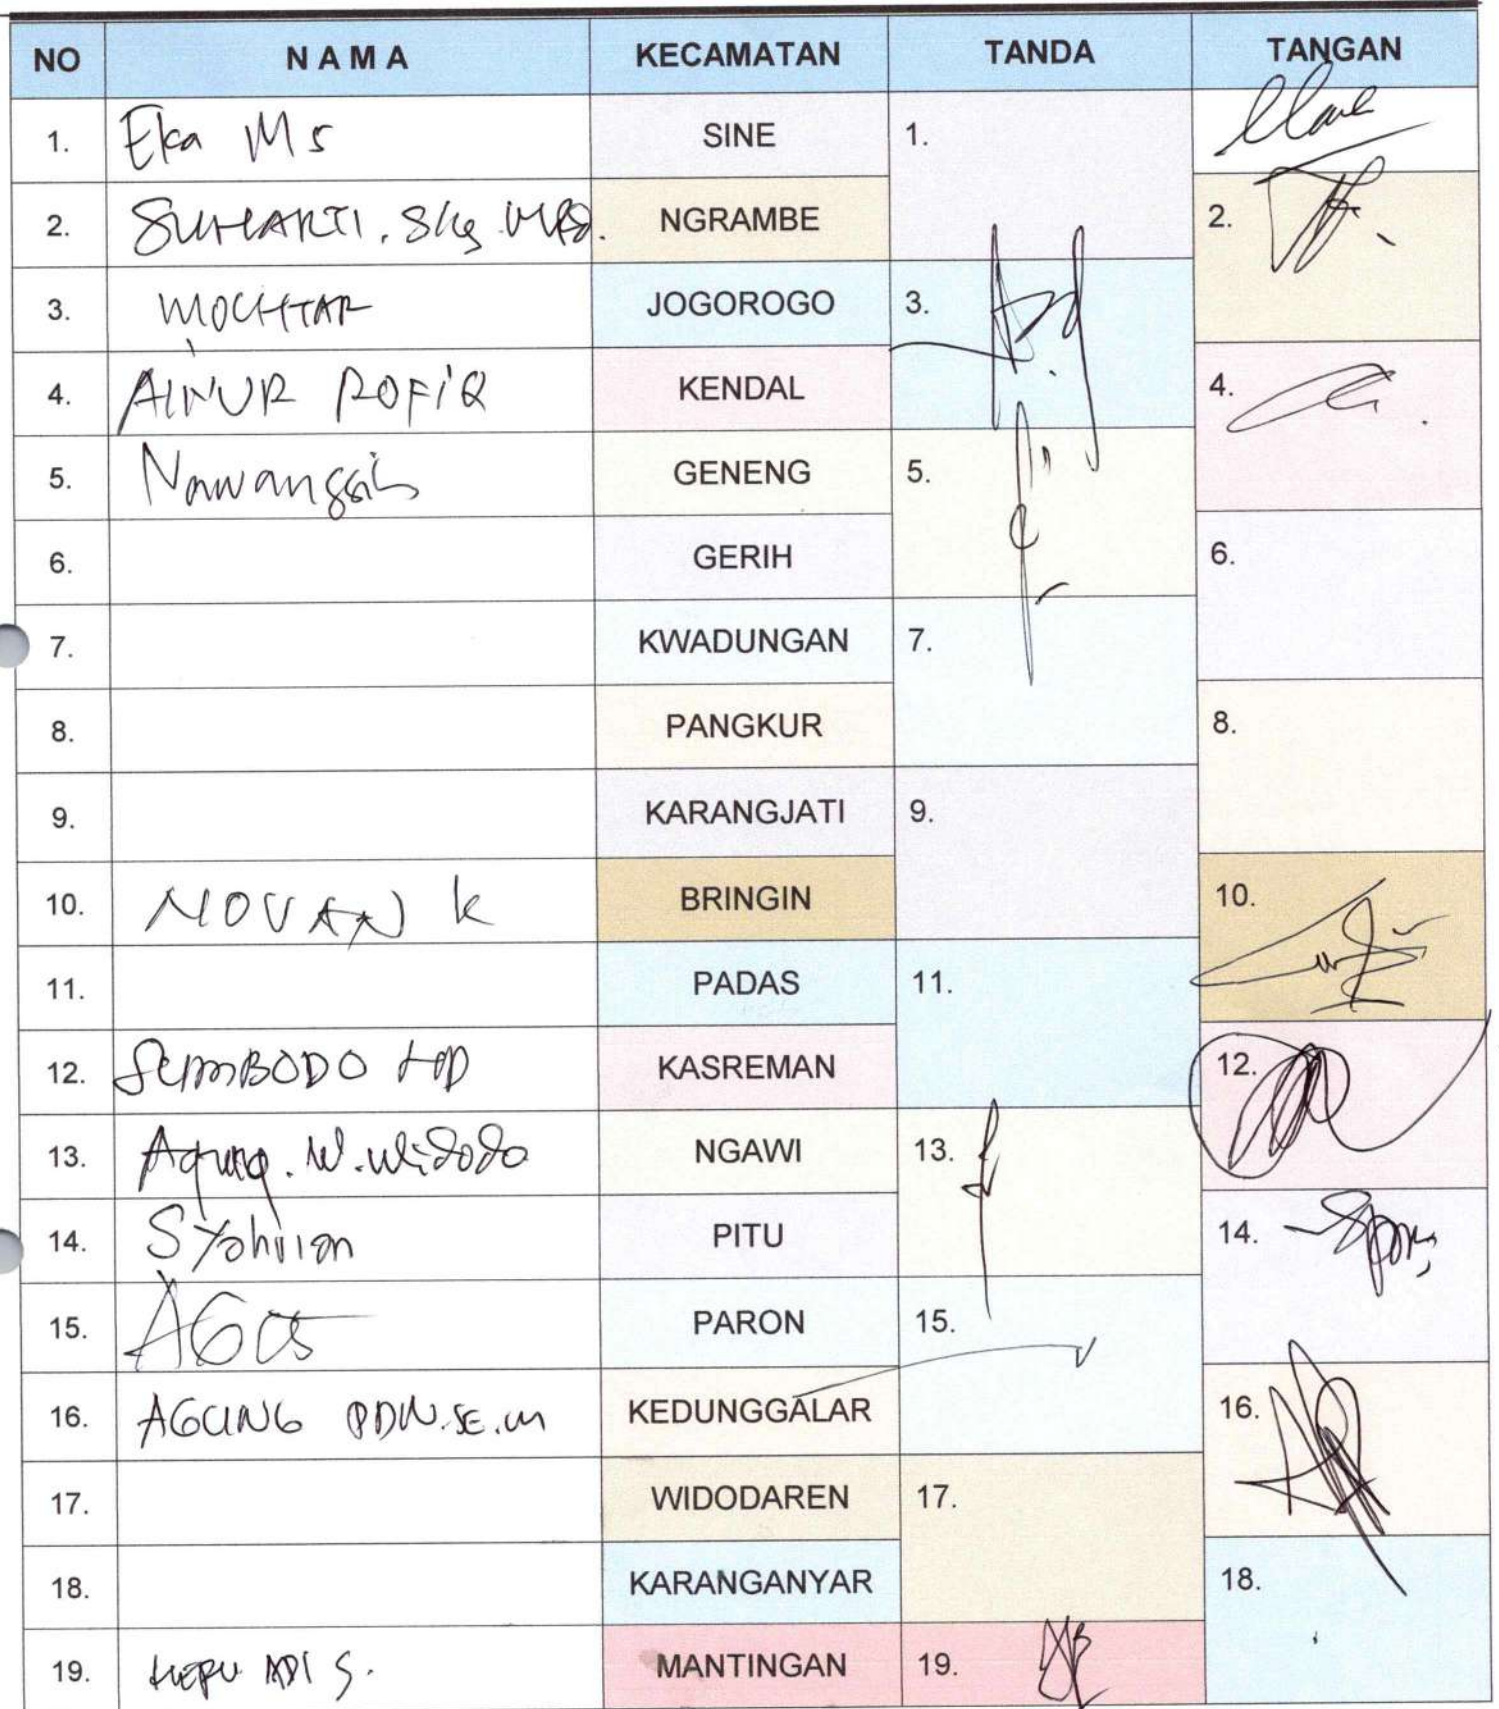 NO NAMA KECAMATAN TANDA TANGAN
1. Eka Ms SINE 1.
2. SUHARTI. NGRAMBE 2.
3. MOCHTAR JOGOROGO 3.
4. AINUR ROFIQ KENDAL 4.
5. Nawangsih GENENG 5.
6. GERIH 6.
7. KWADUNGAN 7.
8. PANGKUR 8.
9. KARANGJATI 9.
10. NOVAN K BRINGIN 10.
11. PADAS 11.
12. SEMBODO KASREMAN 12.
13. Agung. W. Widodo NGAWI 13.
14. PITU 14.
15. AGUS PARON 15.
16. AGUNG PDW.SE.M KEDUNGGALAR 16.
17. WIDODAREN 17.
18. KARANGANYAR 18.
19. ADI S. MANTINGAN 19.